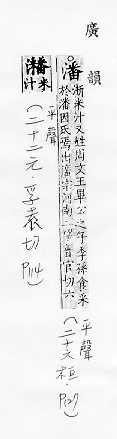 廣韻
潘
淅米汁又姓周文王畢公之子季孫食采
於潘因氏焉出滎陽河南二望普官切六
平聲
(二十六桓.
米
汁
平聲
(二十二元.孚袁切 P114)